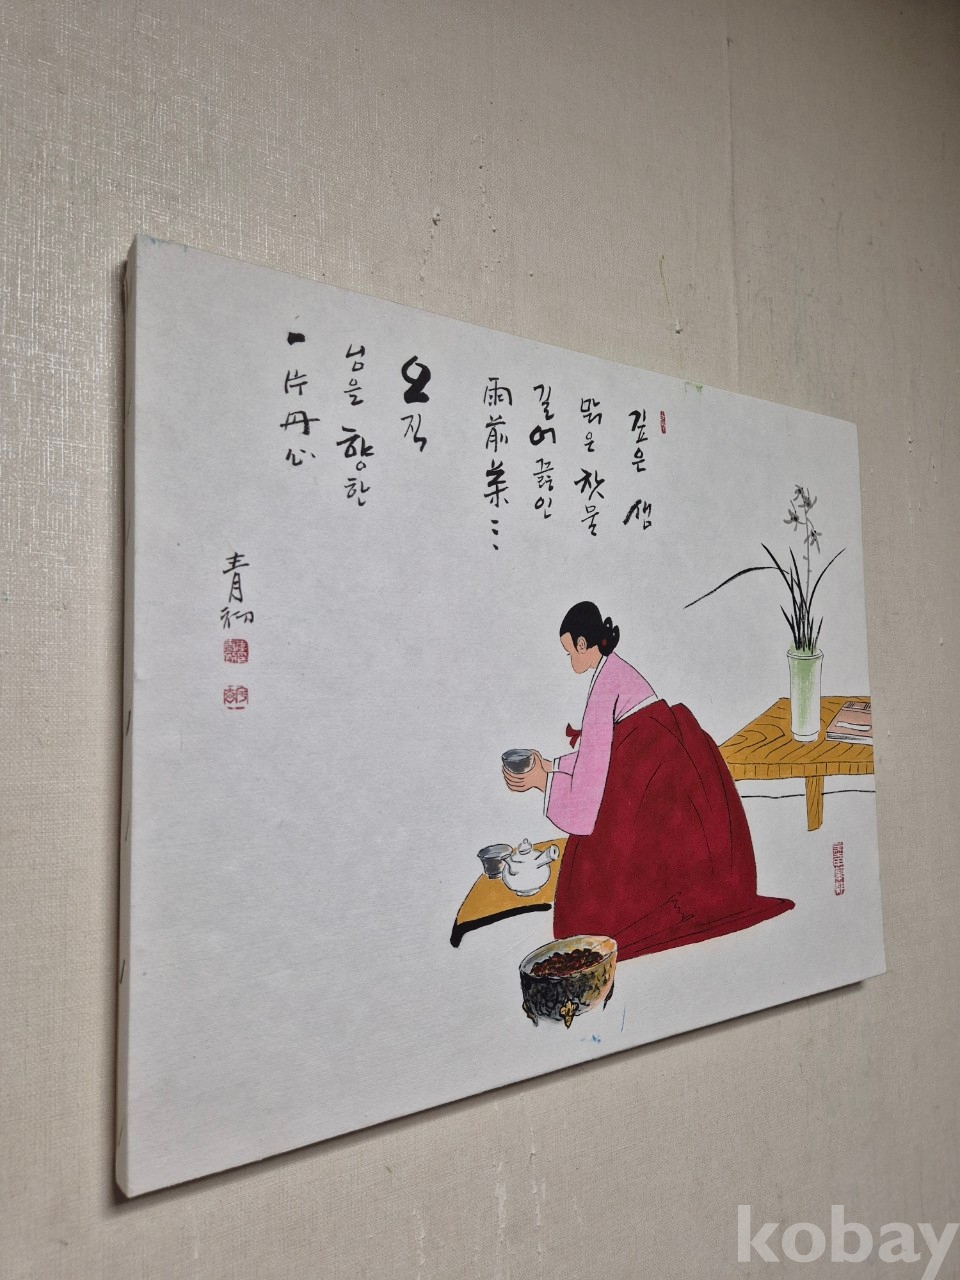 깊은 샘
맑은 찻물
길어 끓인
雨前茶
오직
님을 향한
一片丹心
青初
kobay